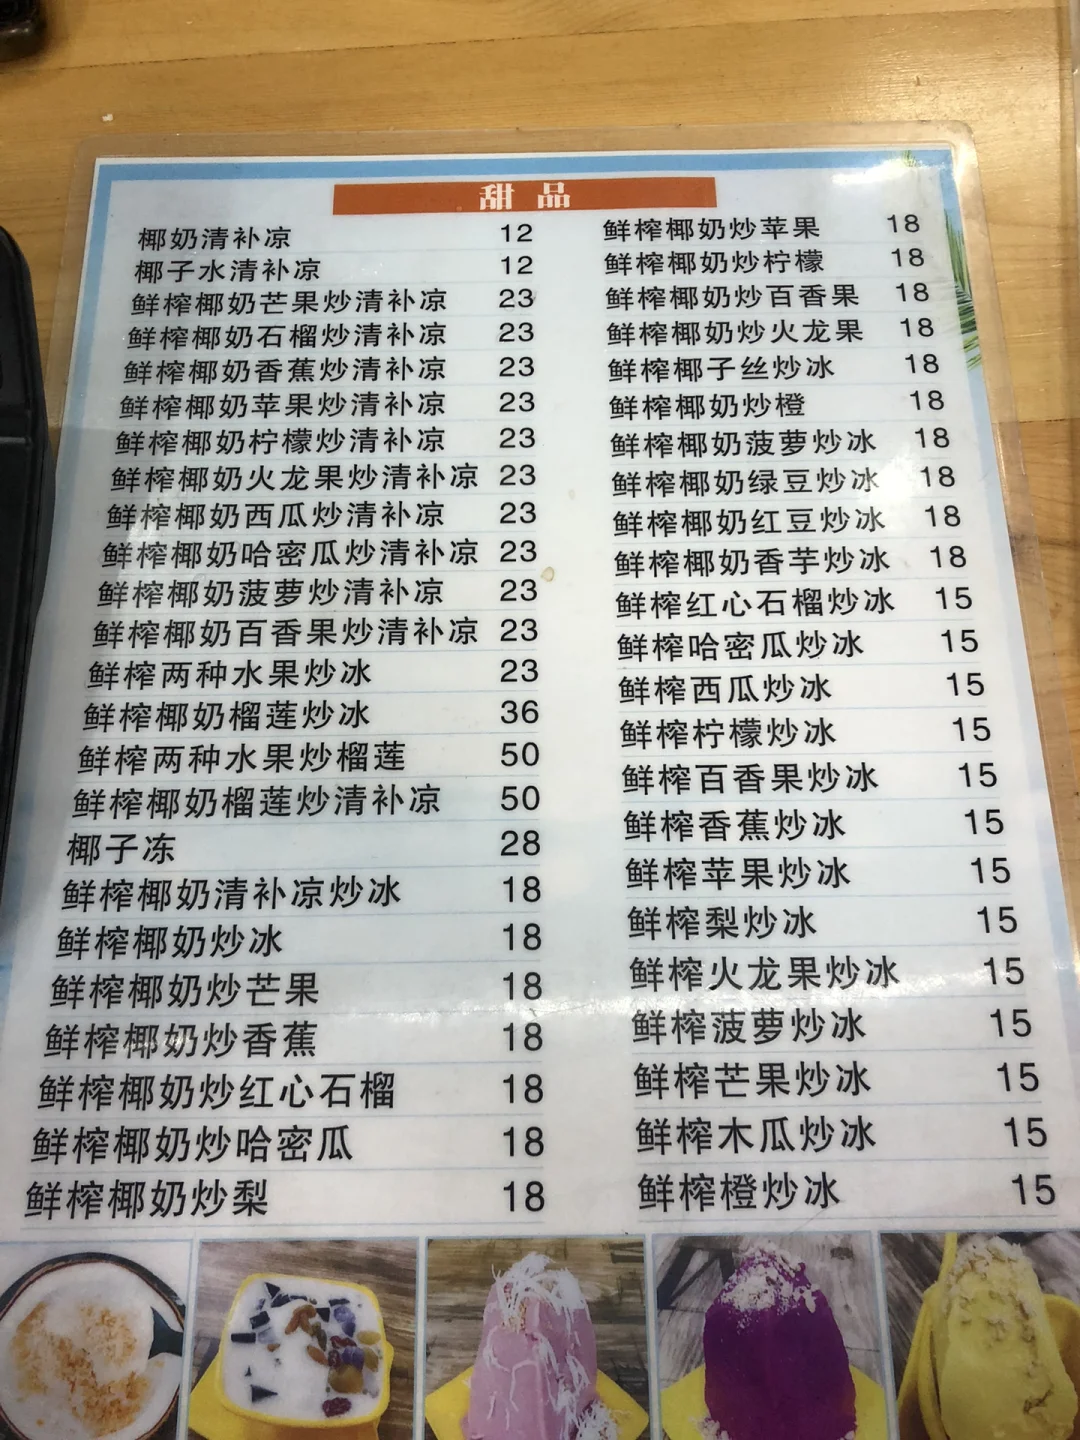 甜品
椰奶清补凉 12
椰子水清补凉 12
鲜榨椰奶芒果炒清补凉 23
鲜榨椰奶石榴炒清补凉 23
鲜榨椰奶香蕉炒清补凉 23
鲜榨椰奶苹果炒清补凉 23
鲜榨椰奶柠檬炒清补凉 23
鲜榨椰奶火龙果炒清补凉 23
鲜榨椰奶西瓜炒清补凉 23
鲜榨椰奶哈密瓜炒清补凉 23
鲜榨椰奶菠萝炒清补凉 23
鲜榨椰奶百香果炒清补凉 23
鲜榨两种水果炒冰 23
鲜榨椰奶榴莲炒冰 36
鲜榨两种水果炒榴莲 50
鲜榨椰奶榴莲炒清补凉 50
椰子冻 28
鲜榨椰奶清补凉炒冰 18
鲜榨椰奶炒冰 18
鲜榨椰奶炒芒果 18
鲜榨椰奶炒香蕉 18
鲜榨椰奶炒红心石榴 18
鲜榨椰奶炒哈密瓜 18
鲜榨椰奶炒梨 18
鲜榨椰奶炒苹果 18
鲜榨椰奶炒柠檬 18
鲜榨椰奶炒百香果 18
鲜榨椰奶炒火龙果 18
鲜榨椰子丝炒冰 18
鲜榨椰奶炒橙 18
鲜榨椰奶菠萝炒冰 18
鲜榨椰奶绿豆炒冰 18
鲜榨椰奶红豆炒冰 18
鲜榨椰奶香芋炒冰 18
鲜榨红心石榴炒冰 15
鲜榨哈密瓜炒冰 15
鲜榨西瓜炒冰 15
鲜榨柠檬炒冰 15
鲜榨百香果炒冰 15
鲜榨香蕉炒冰 15
鲜榨苹果炒冰 15
鲜榨梨炒冰 15
鲜榨火龙果炒冰 15
鲜榨菠萝炒冰 15
鲜榨芒果炒冰 15
鲜榨木瓜炒冰 15
鲜榨橙炒冰 15